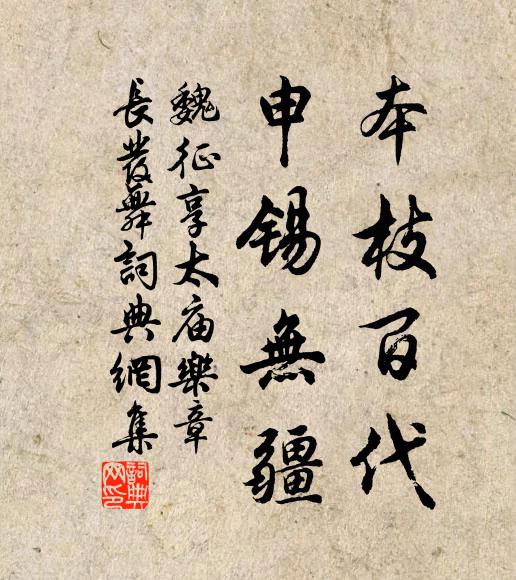 本枝百代
申锡無疆
魏征享太庙樂章
長發舞詞典網集
詞典
网印